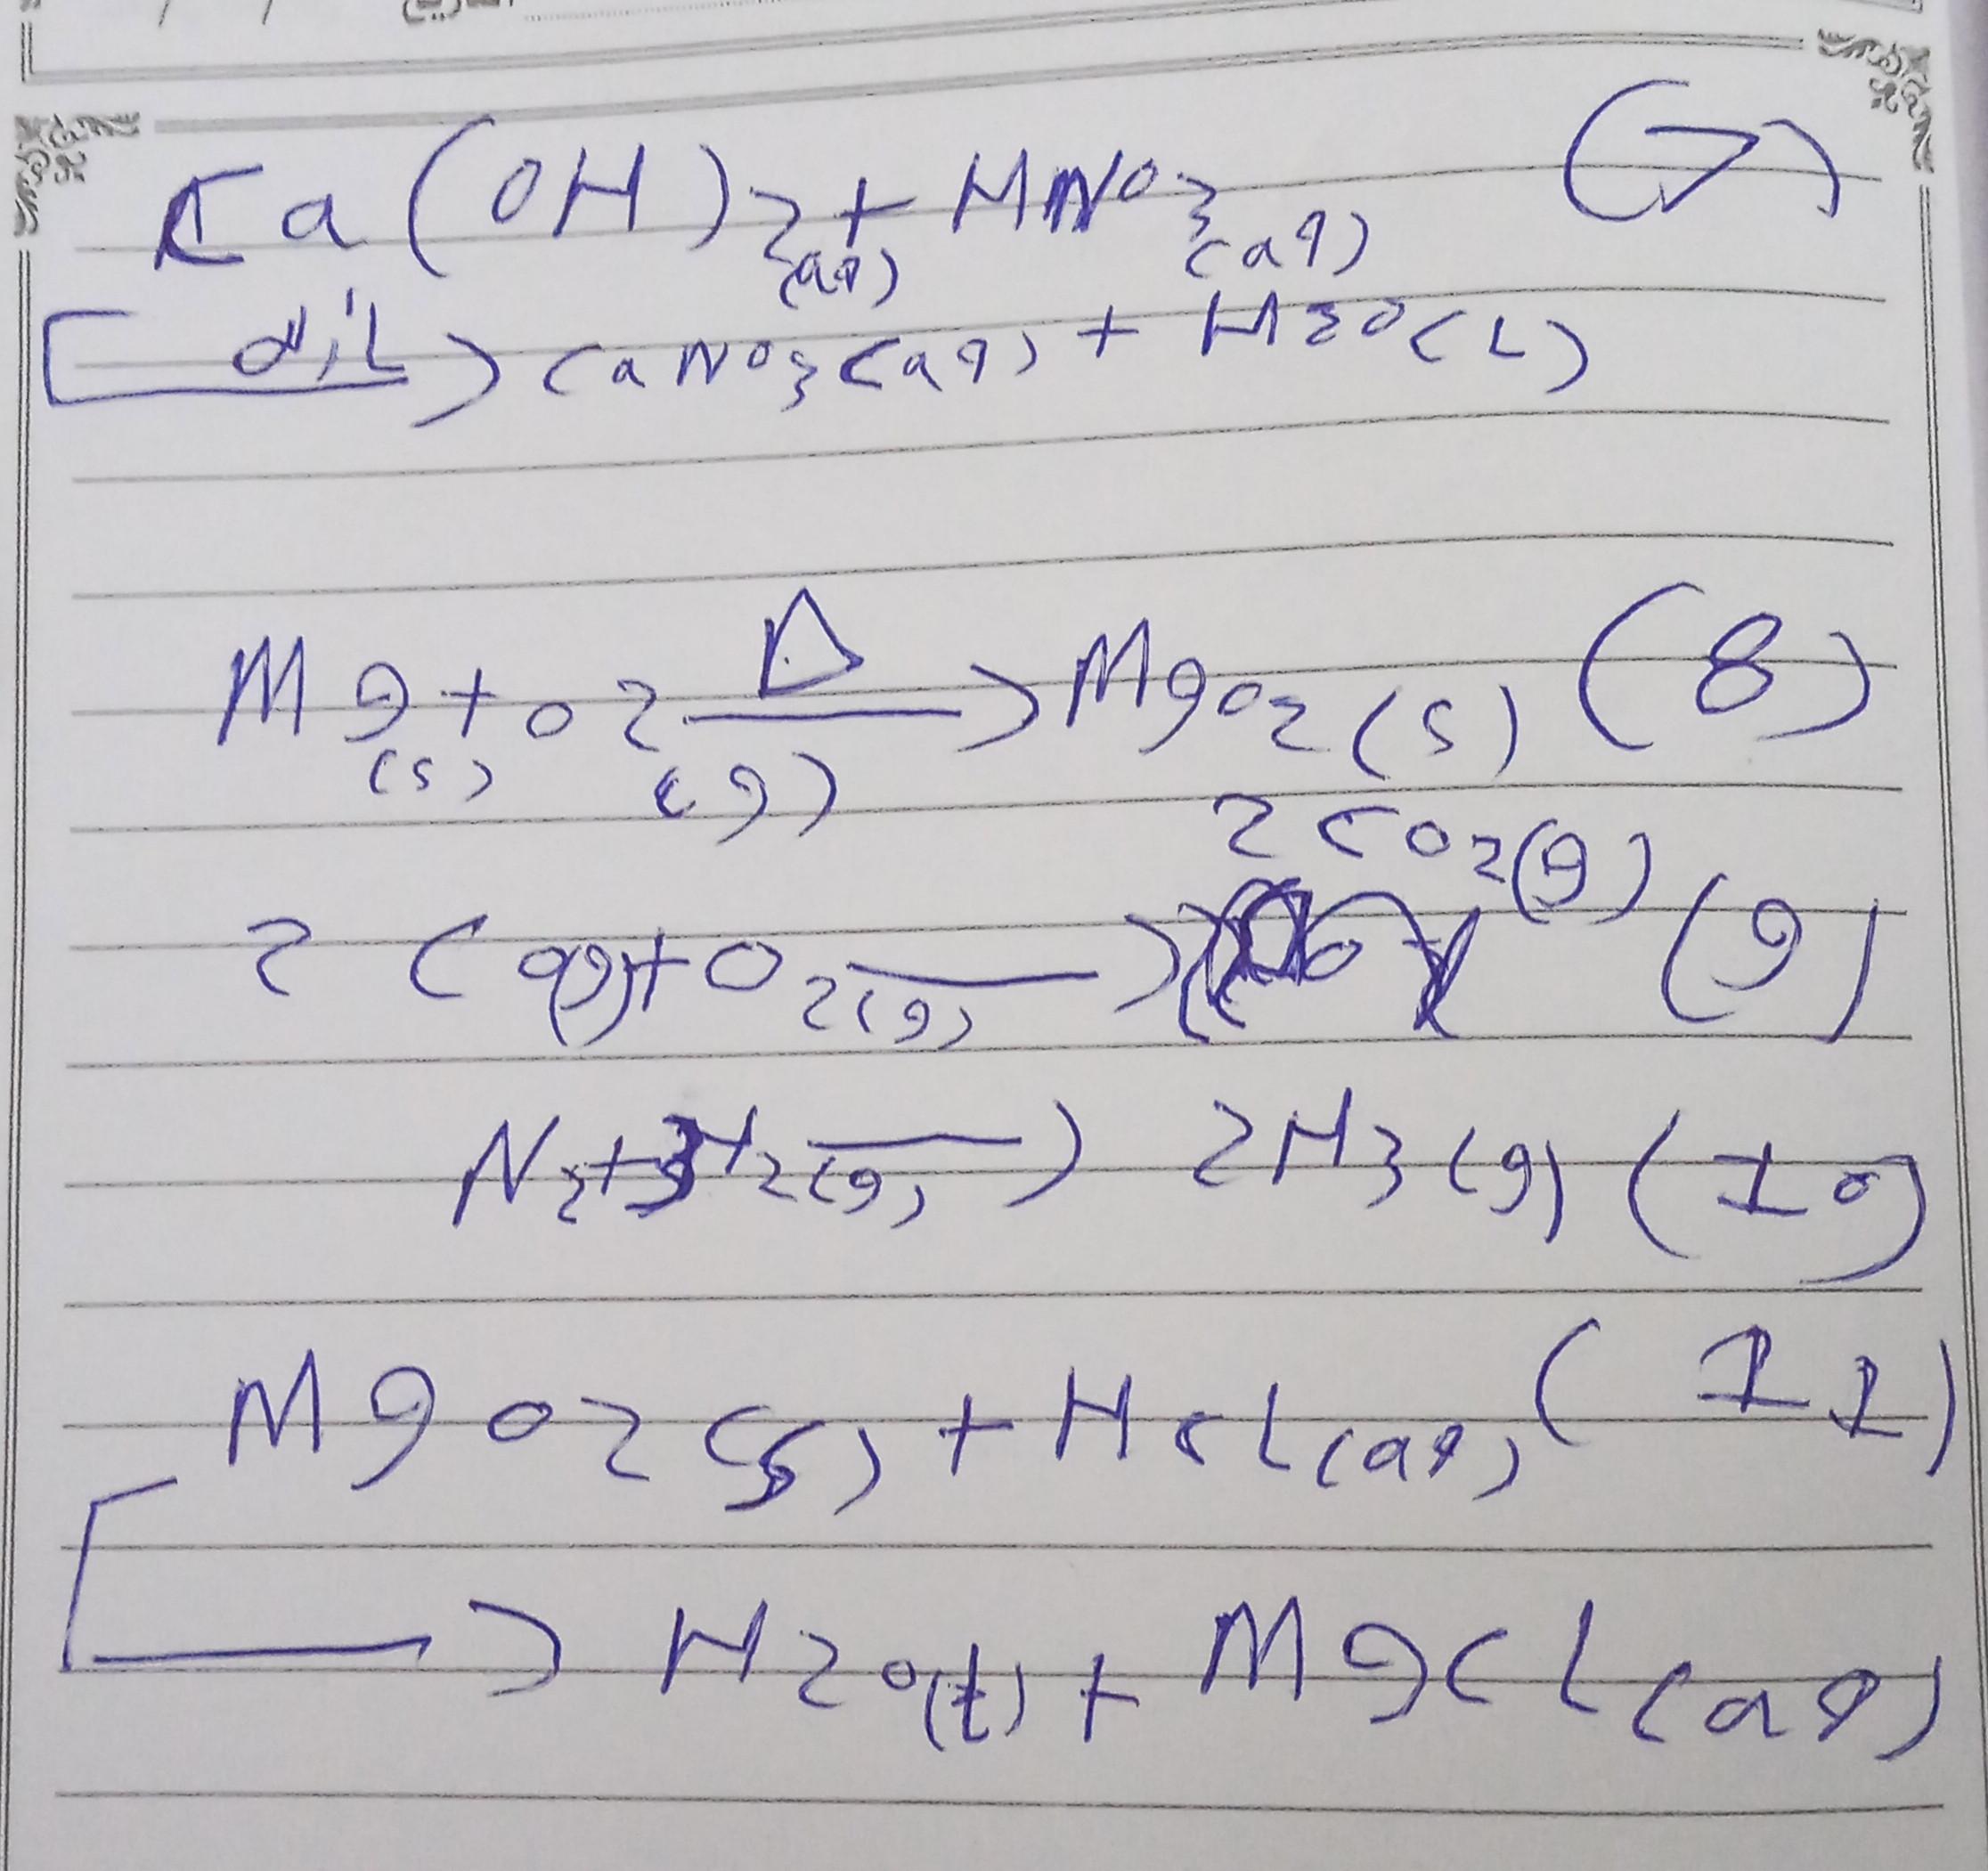 Ca(OH)2(aq) + HNO3(aq) (7)
dil CaNO3(aq) + H2O(L)
Δ
Mg(s) + O2(g) → MgO2(s) (8)
2CO2(g)
2C(g) + O2(g) → (9)
N2 + 3H2(g) → 2H3(g) (10)
MgO2(s) + HCl(aq) (11)
→ H2O(l) + MgCl(aq)